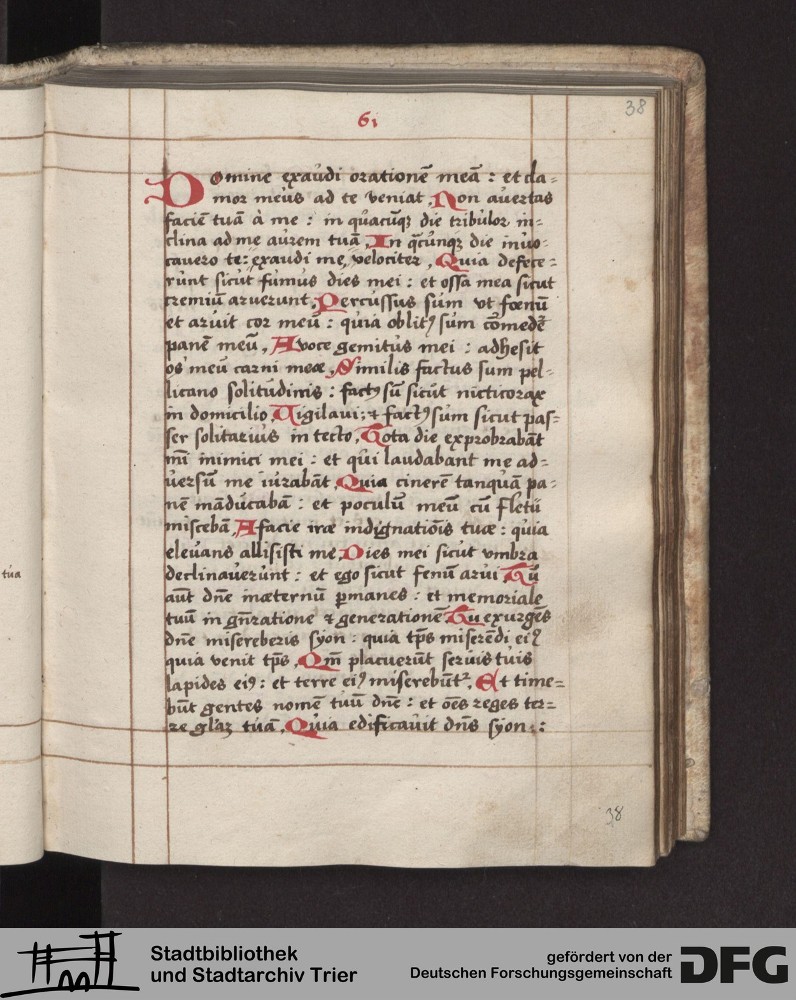 38
61
Domine exaudi orationē meā : et cla=
mor meus ad te veniat. Non auertas
faciē tuā à me : in quacūqȝ die tribulor in=
clina ad me aurem tuā. In qcūnqȝ die inuo=
cauero te: exaudi me, velociter. Quia defece=
runt sicut fumus dies mei : et ossa mea sicut
cremiū aruerunt. Percussus sum vt fœnū
et aruit cor meū : quia oblitꝯ sum cōmedē
panē meū. A voce gemitus mei : adhesit
os meū carni meæ. Similis factus sum pel=
licano solitudinis : factꝯ sū sicut nicticorax
in domicilio. Vigilaui : & factꝯ sum sicut pas=
ser solitarius in tecto. Tota die exprobrabāt
mī inimici mei : et qui laudabant me ad=
uersū me iurabāt. Quia cinerē tanquā pa=
nē māducabā : et poculū meū cū fletū
miscebā. A facie iræ indignatiōis tuæ : quia
eleuans allisisti me. Dies mei sicut vmbra
declinauerunt : et ego sicut fenū arui Tū
aūt dn̄e inæternū ꝑmanes : et memoriale
tuū in gn̄ratione & generationē. Tu exurgēs
dn̄e misereberis syon : quia tp̄s miserēdi eiꝯ
quia venit tp̄s. Qm̄ placuerūt seruis tuis
lapides eiꝯ : et terre eiꝯ miserebūtᷣ. Et time=
būt gentes nomē tuū dn̄e : et oēs reges ter=
re gl̄aȝ tuā. Quia edificauit dn̄s syon :
tua
38
Stadtbibliothek
und Stadtarchiv Trier
gefördert von der
Deutschen Forschungsgemeinschaft
DFG